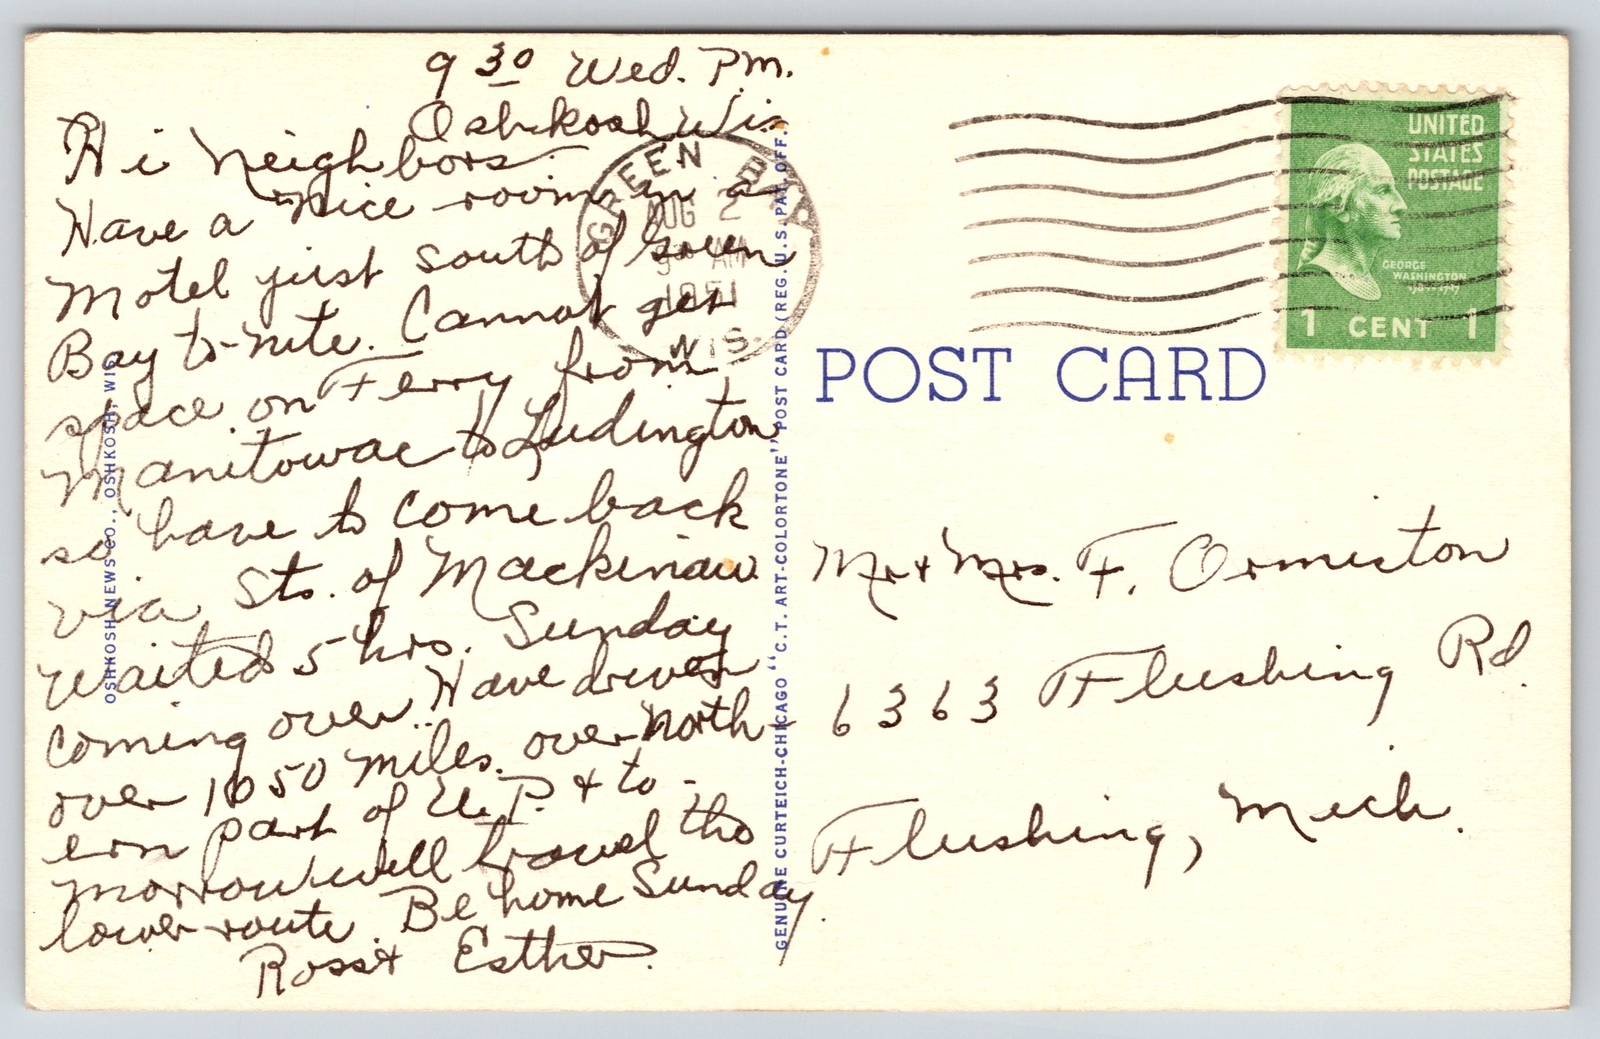 9 30 Wed. P.M.
Oshkosh, Wis.
Hi Neighbors
Have a nice room in a
Motel just south of Green
Bay to-nite. Cannot get
space on Ferry from
Manitowac to Ludington
so have to come back
via Sts. of Mackinaw
Waited 5 hrs. Sunday
coming over. Have driven
over 1050 miles over North-
ern part of U.P. & to-
morrow will travel the
lower route. Be home Sunday.
Ross & Esther.
GREEN BAY
AUG 2
AM
1951
WIS.
UNITED
STATES
POSTAGE
GEORGE
WASHINGTON
1 CENT 1
POST CARD
Mr & Mrs. F. Ormiston
6363 Flushing Rd.
Flushing, Mich.
OSHKOSH NEWS CO., OSHKOSH, WIS.
GENUINE CURTEICH-CHICAGO "C.T. ART-COLORTONE" POST CARD (REG. U.S. PAT. OFF.)